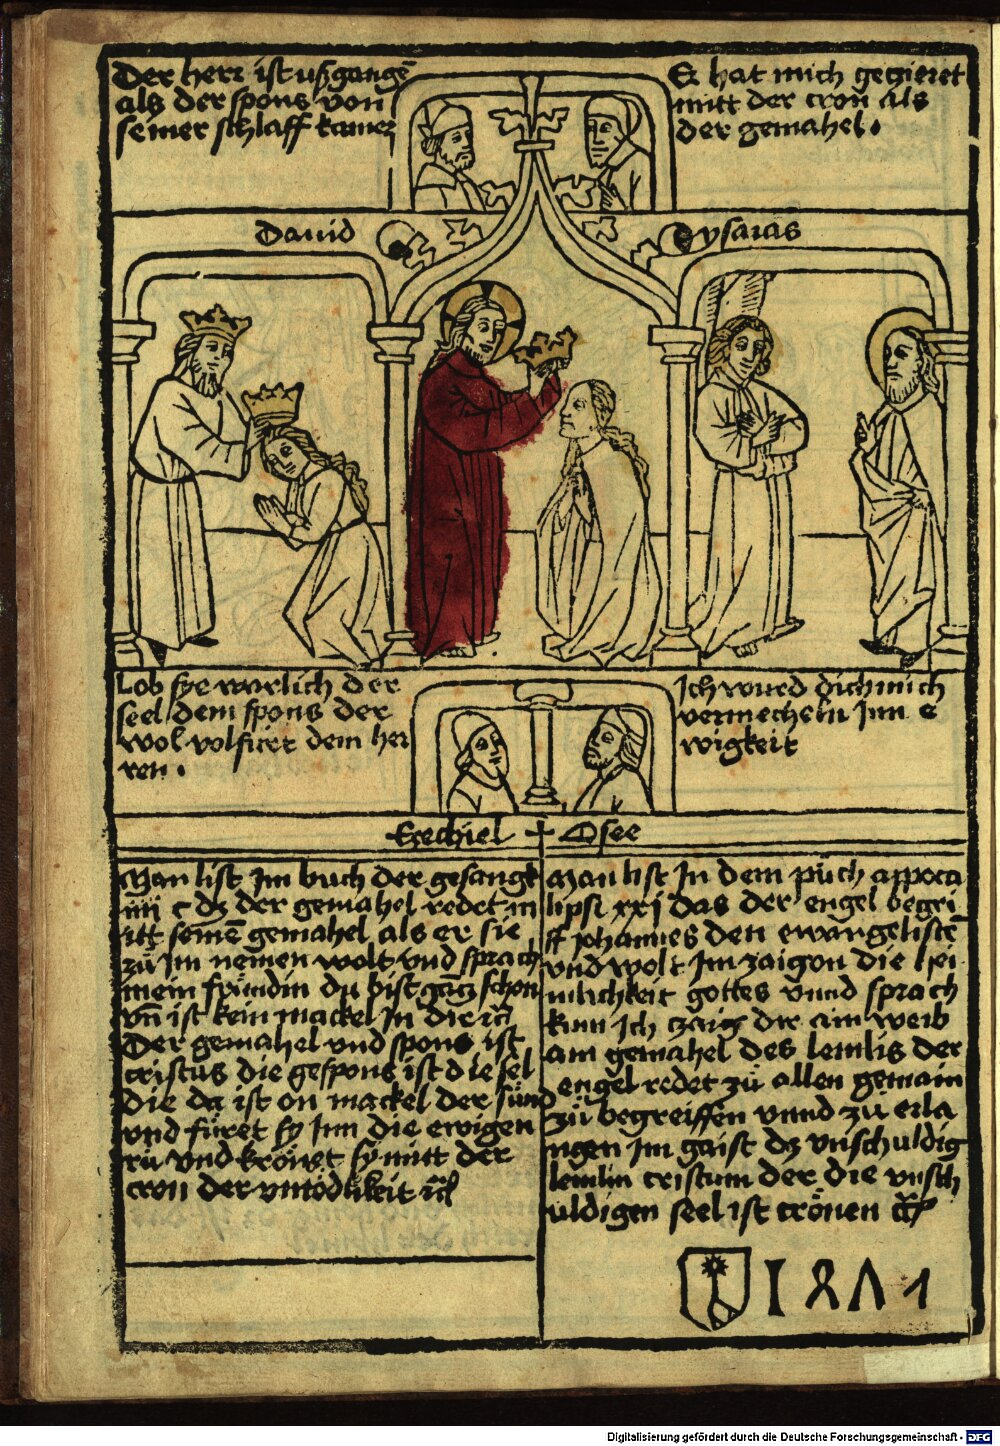 Der herr ist ußgangē
als der spons von
seiner schlaff kamer
Er hat mich gezieret
mitt der cron als
der gemahel.
Dauid
Ysaias
Lob sye warlich der
seel dem spons der
wol volfiret dem her
ren.
Ich wurd dich mich
vermecheln Inn e
wigkeit
Ezechiel + Osee
Man list Im buch der gesangk
iiii c dz der gemahel redet m
itt seinē gemahel als er sie
zů Im nemen wolt vnd sprach
mein fründin du bist gantz schon
vn̄ ist kein mackel In dir
Der gemahel vnd spons ist
cristus die gespons ist die sel
die da ist on mackel der sünd
vnd füret sy Inn die ewigen
rů vnd krönet sy mitt der
cron der vntödlikeit
Man list In dem půch appoca
lipsi xxi das der engel begri
ff johannes den ewangelistē
vnd wolt Im zaigen die hei
mlichkeit gottes vnnd sprach
kum Ich zaig dir ain weib
am gemahel des lemlis der
engel redet zů allen gemain
zů begreiffen vnnd zů erla
ngen Im gaist dz vnschuldig
lemlin cristum der die vnsch
uldigen seel ist crönen
1 8 Λ 1
Digitalisierung gefördert durch die Deutsche Forschungsgemeinschaft - DFG